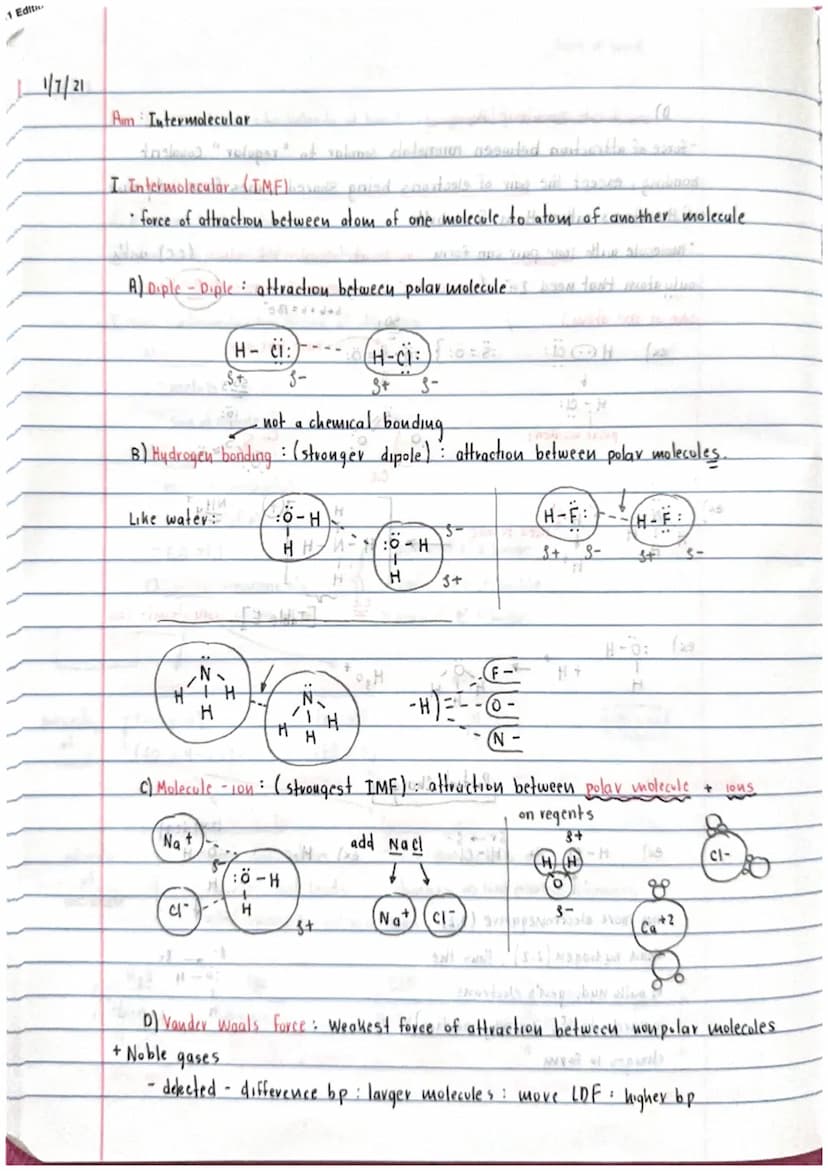 1/7/21
Aim : Intermolecular
I. Intermolecular (IMF)
· force of attraction between atom of one molecule to atom of another molecule
A) Diple - Diple : attraction between polar molecule
H - Cl: H-Cl:
δ+ δ- δ+ δ-
not a chemical bonding
B) Hydrogen bonding : (stronger dipole) : attraction between polar molecules.
Like water:
:Ö - H
H
:Ö - H
H
δ-
δ+
H-F: H-F:
δ+ δ- δ+ δ-
N
H H H
N
H H H
-H)
F -
O -
N -
C) Molecule - ion : (strongest IMF) : attraction between polar molecule + ions
Na+
Cl-
δ-
:Ö - H
H
δ+
add NaCl
Na+ Cl-
on regents
δ+
H H
O
δ-
Cl-
Ca+2
D) Vander Waals Force : Weakest force of attraction between nonpolar molecoles
+ Noble gases
- detected - difference bp : larger molecules : more LDF : higher bp